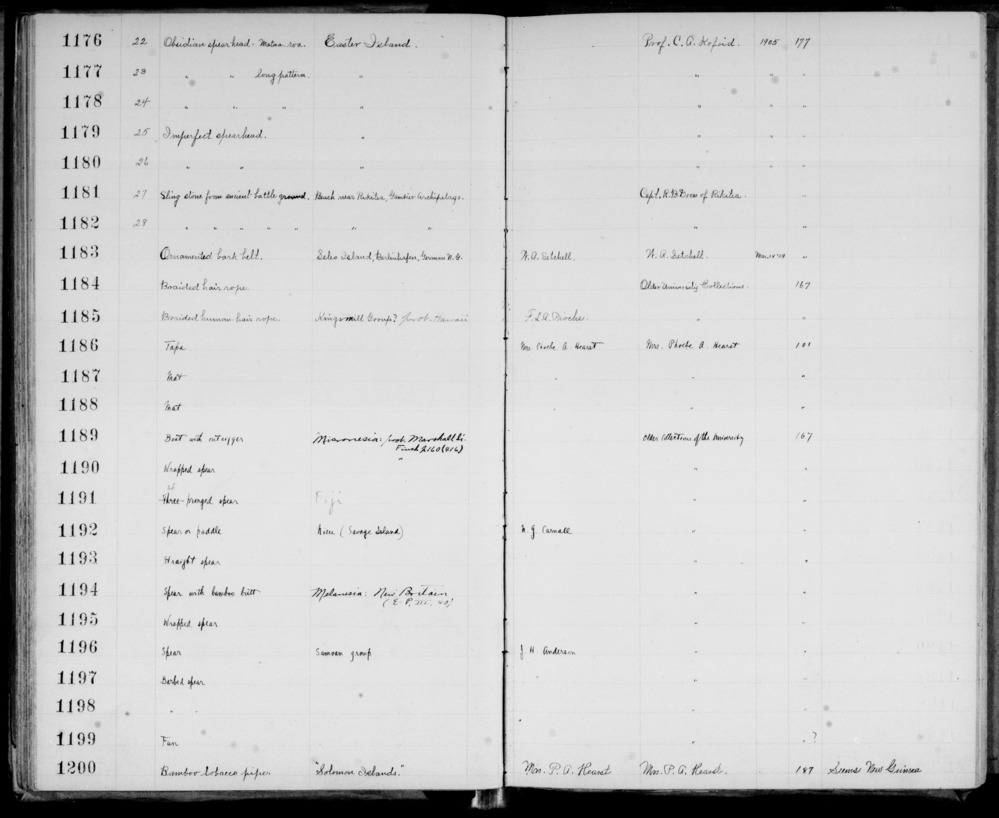 1176 22 Obsidian spearhead - Mataa roa. Easter Island. Prof. C. A. Kofoid. 1905 177
1177 23 " " long pattern. " " " "
1178 24 " " " " " " "
1179 25 Imperfect spearhead. " " " "
1180 26 " " " " " "
1181 27 Sling stone from ancient battle ground. Bush near Rikitea, Gambier Archipelago. Capt. R. B. of Rikitea. "
1182 28 " " " " " " " " "
1183 Ornamented bark belt. Seleo Island, Berlinhafen, German N. G. W. A. Setchell. W. A. Setchell. "
1184 Braided hair rope. Older University Collections. 167
1185 Braided human hair rope. Kingsmill Group? prob. Hawaii F. L. A. " "
1186 Tapa Mrs. Phoebe A. Hearst Mrs. Phoebe A. Hearst 101
1187 Mat " " "
1188 Mat " " "
1189 Boat with outrigger Micronesia: prob. Marshall Is. Older Collections of the University 167
Finsch 2160 (416)
1190 Wrapped spear " " "
1191 Three pronged spear Fiji " "
4
1192 Spear or paddle Niue (Savage Island) W. J. Carnall " "
1193 Straight spear " "
1194 Spear with bamboo butt Melanesia: New Britain " "
(E-P, III, 43)
1195 Wrapped spear " "
1196 Spear Samoan group J. H. Anderson " "
1197 Barbed spear " "
1198 " " " "
1199 Fan " " ?
1200 Bamboo tobacco pipe. "Solomon Islands." Mrs. P. A. Hearst Mrs. P. A. Hearst. 187 Seems New Guinea